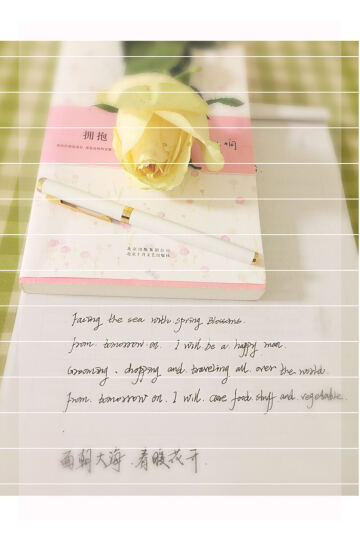 拥抱
间
北京出版集团公司
北京十月文艺出版社
Facing the sea with spring blossoms.
from tomorrow on. I will be a happy man.
Grooming. chopping and traveling all over the world.
from tomorrow on. I will care food stuff and vegetable.
面朝大海.春暖花开.